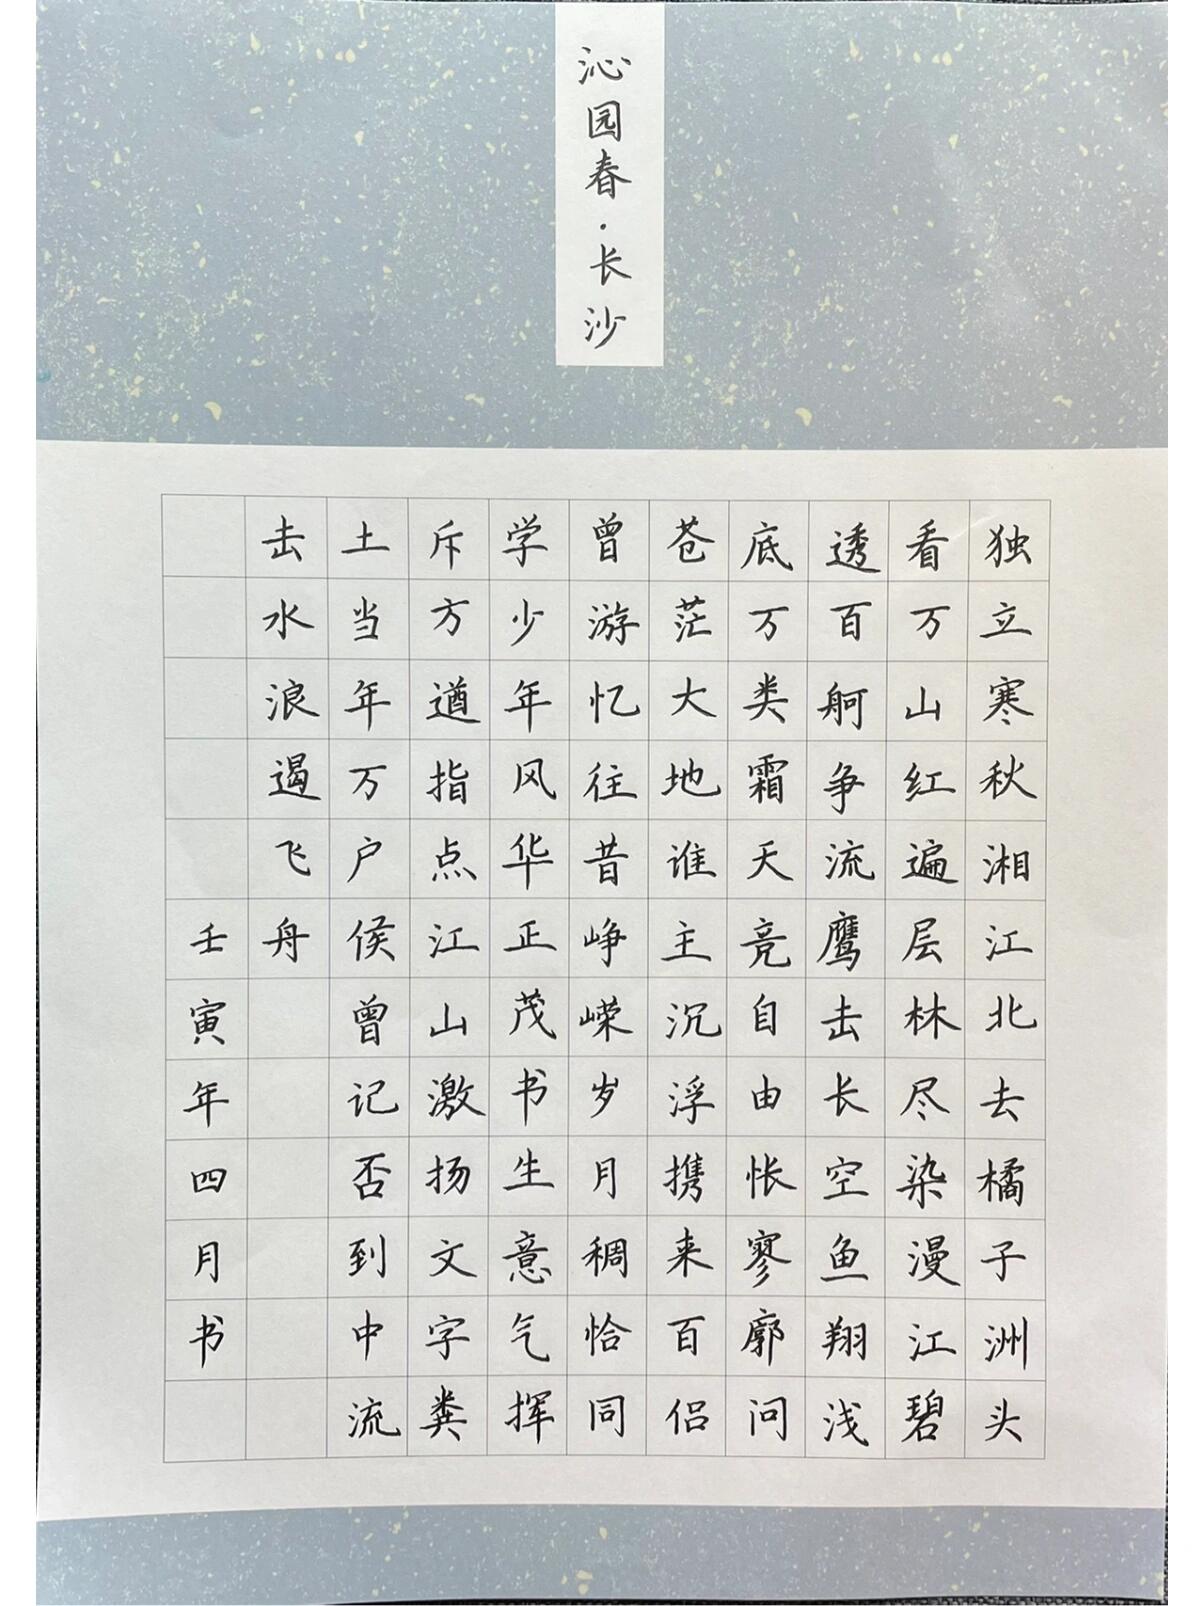 沁园春·长沙
独立寒秋湘江北去橘子洲头
看万山红遍层林尽染漫江碧
透百舸争流鹰击长空鱼翔浅
底万类霜天竞自由怅寥廓问
苍茫大地谁主沉浮携来百侣
曾游忆往昔峥嵘岁月稠恰同
学少年风华正茂书生意气挥
斥方遒指点江山激扬文字粪
土当年万户侯曾记否到中流
击水浪遏飞舟
壬寅年四月书